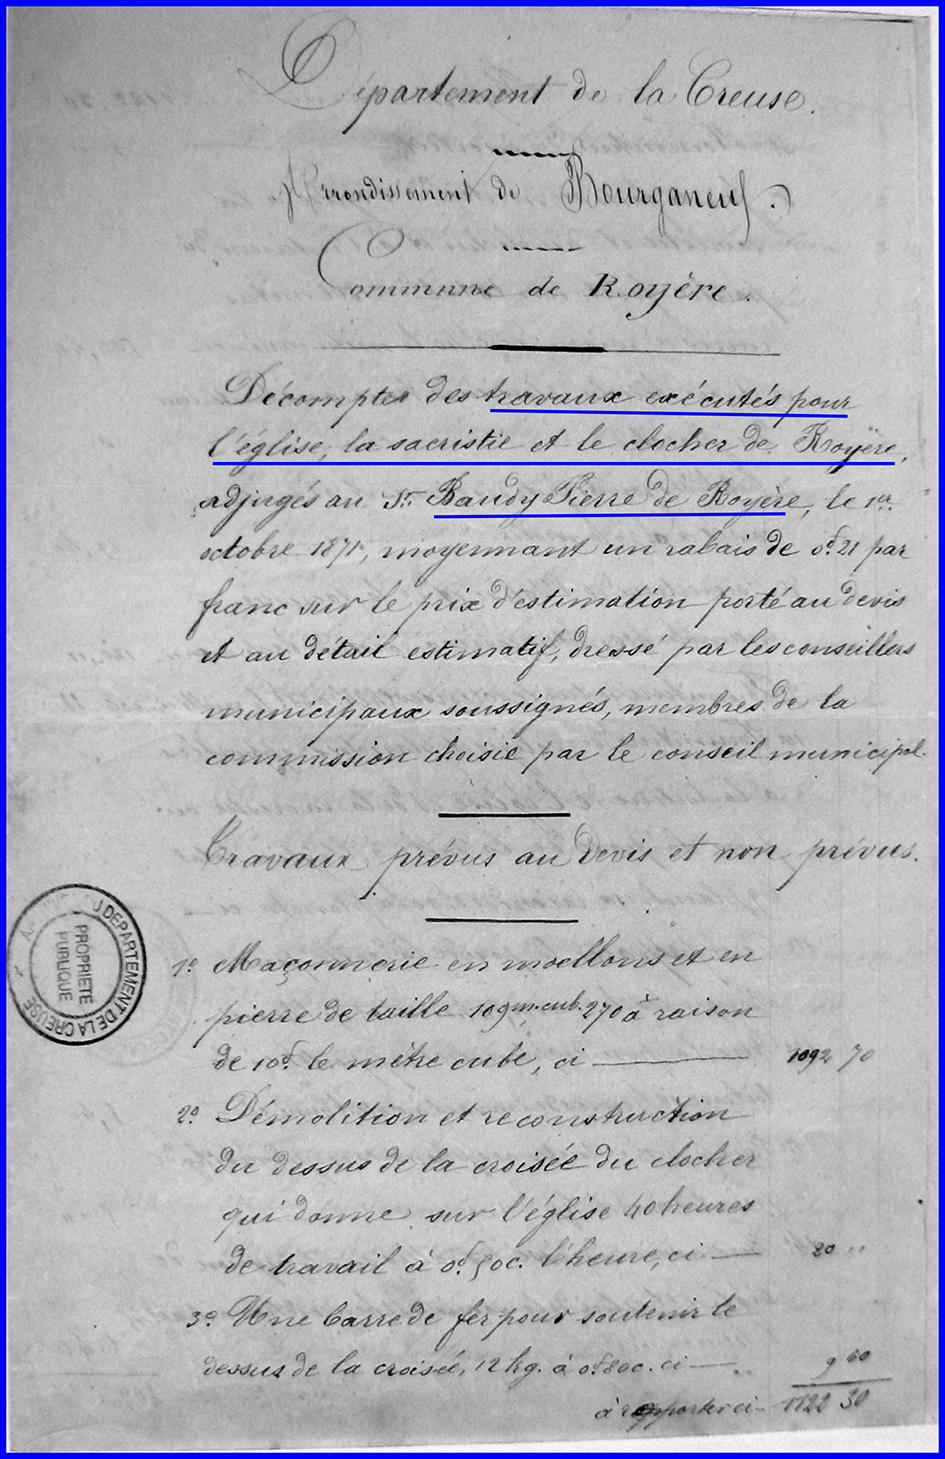 Département de la Creuse.
Arrondissement de Bourganeuf.
Commune de Royère.
Décompte des travaux exécutés pour
l'église, la sacristie et le clocher de Royère,
adjugés au Sr. Baudy Pierre de Royère, le 1er
octobre 1871, moyennant un rabais de 0f.21 par
franc sur le prix d'estimation porté au devis
et au détail estimatif, dressé par les conseillers
municipaux soussignés, membres de la
commission choisie par le conseil municipal.
Travaux prévus au devis et non prévus.
1o. Maçonnerie en moellons et en
pierre de taille 109m.cub.270 à raison
de 10f. le mètre cube, ci — 1092 70
2o. Démolition et reconstruction
du dessus de la croisée du clocher
qui donne sur l'église 40 heures
de travail à 0f.50c. l'heure, ci — 20 "
3o. Une barre de fer pour soutenir le
dessus de la croisée, 12 kg. à 0f.80c. ci — 9 60
à rapporter ci — 1122 30
DU DEPARTEMENT DE LA CREUSE
PROPRIETE
PUBLIQUE